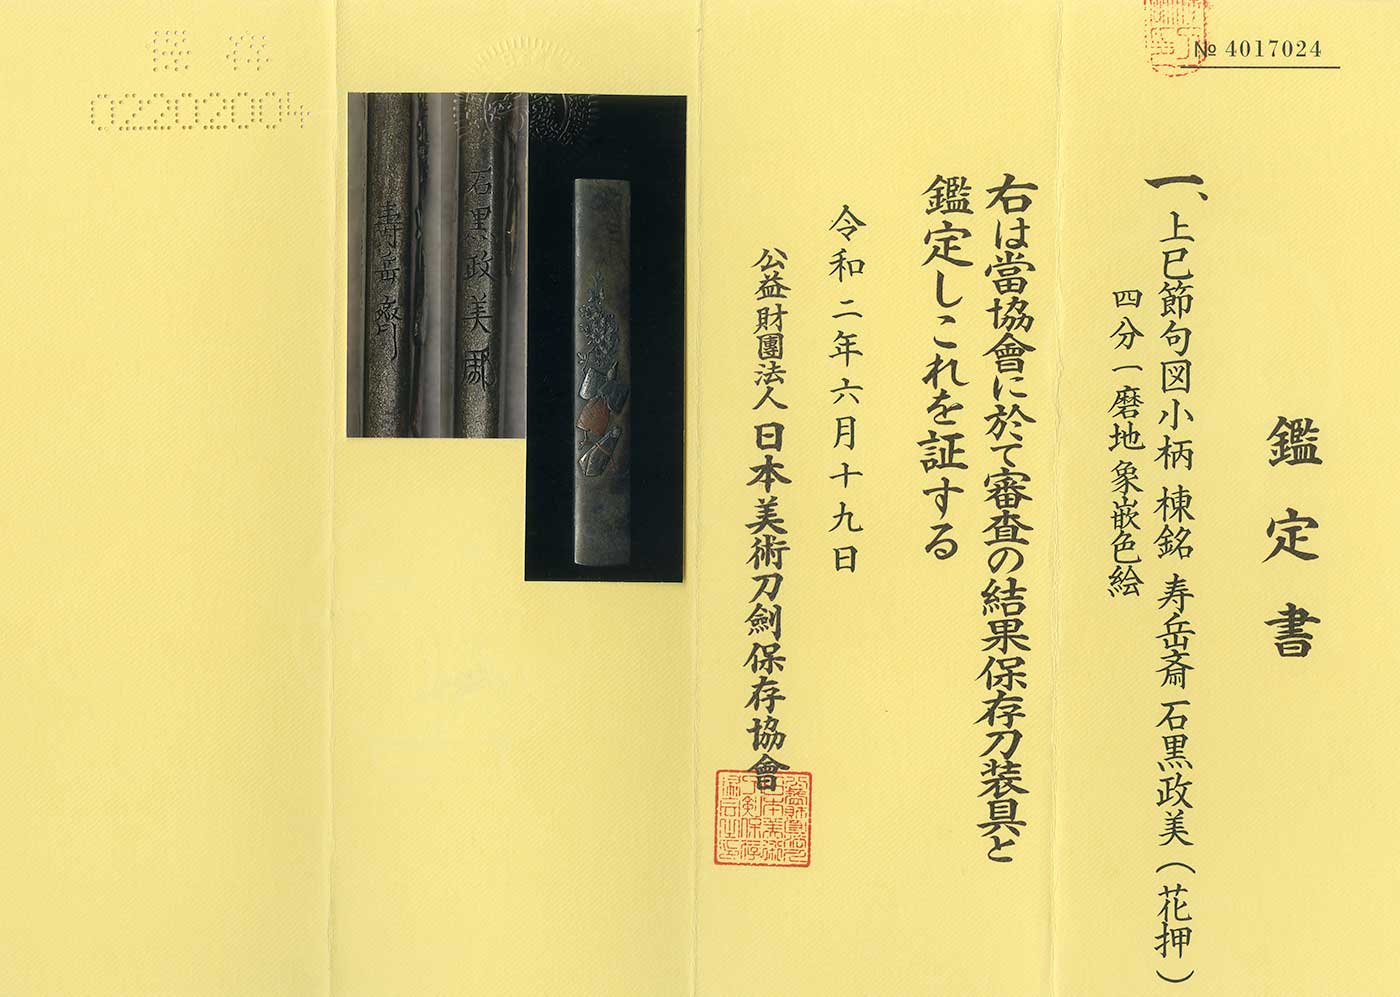 № 4017024
鑑定書
一、上巳節句図小柄 棟銘 寿岳斎 石黒政美(花押)
四分一磨地 象嵌色絵
右は當協會に於て審査の結果保存刀装具と
鑑定しこれを証する
令和二年六月十九日
公益財團法人 日本美術刀劍保存協會
石黒政美
壽岳齋
保存
02202004